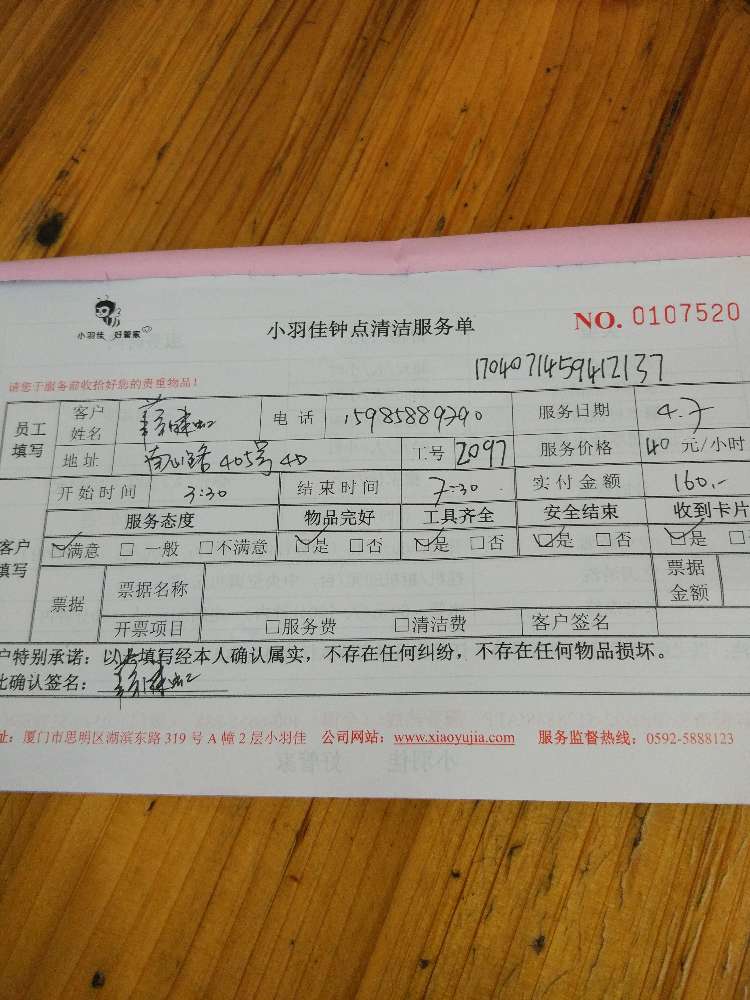 小羽佳 好管家
小羽佳钟点清洁服务单
NO. 0107520
1704071459412137
请您于服务前收拾好您的贵重物品!
员工填写 客户姓名 电话 15985889790 服务日期 4.7
地址 405号4D 工号 2097 服务价格 40 元/小时
客户填写 开始时间 3:30 结束时间 7:30 实付金额 160.-
服务态度 物品完好 工具齐全 安全结束 收到卡片
☑满意 □ 一般 □不满意 ☑是 □否 ☑是 □否 ☑是 □否 ☑是 □
票据 票据名称 票据金额
开票项目 □服务费 □清洁费 客户签名
户特别承诺:以上填写经本人确认属实,不存在任何纠纷,不存在任何物品损坏。
此确认签名:
址:厦门市思明区湖滨东路 319 号 A 幢 2 层小羽佳 公司网站:www.xiaoyujia.com 服务监督热线:0592-5888123